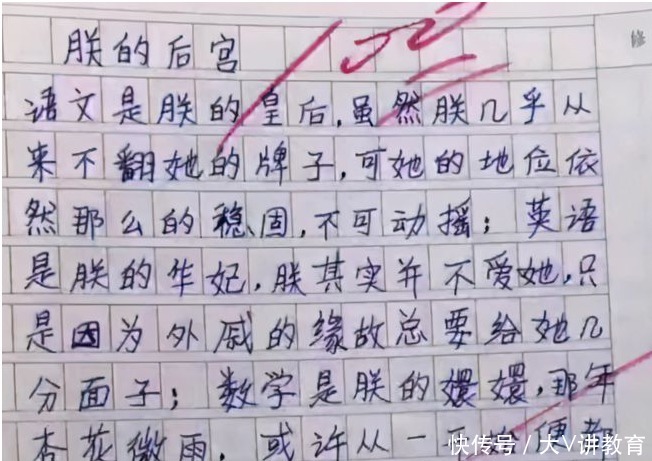 朕的后宫
修
语文是朕的皇后,虽然朕几乎从
来不翻她的牌子,可她的地位依
然那么的稳固,不可动摇;英语
是朕的华妃,朕其实并不爱她,只
是因为外戚的缘故总要给她几
分面子;数学是朕的嬛嬛,那年
杏花微雨,或许从一开始便都
快传号/大V讲教育